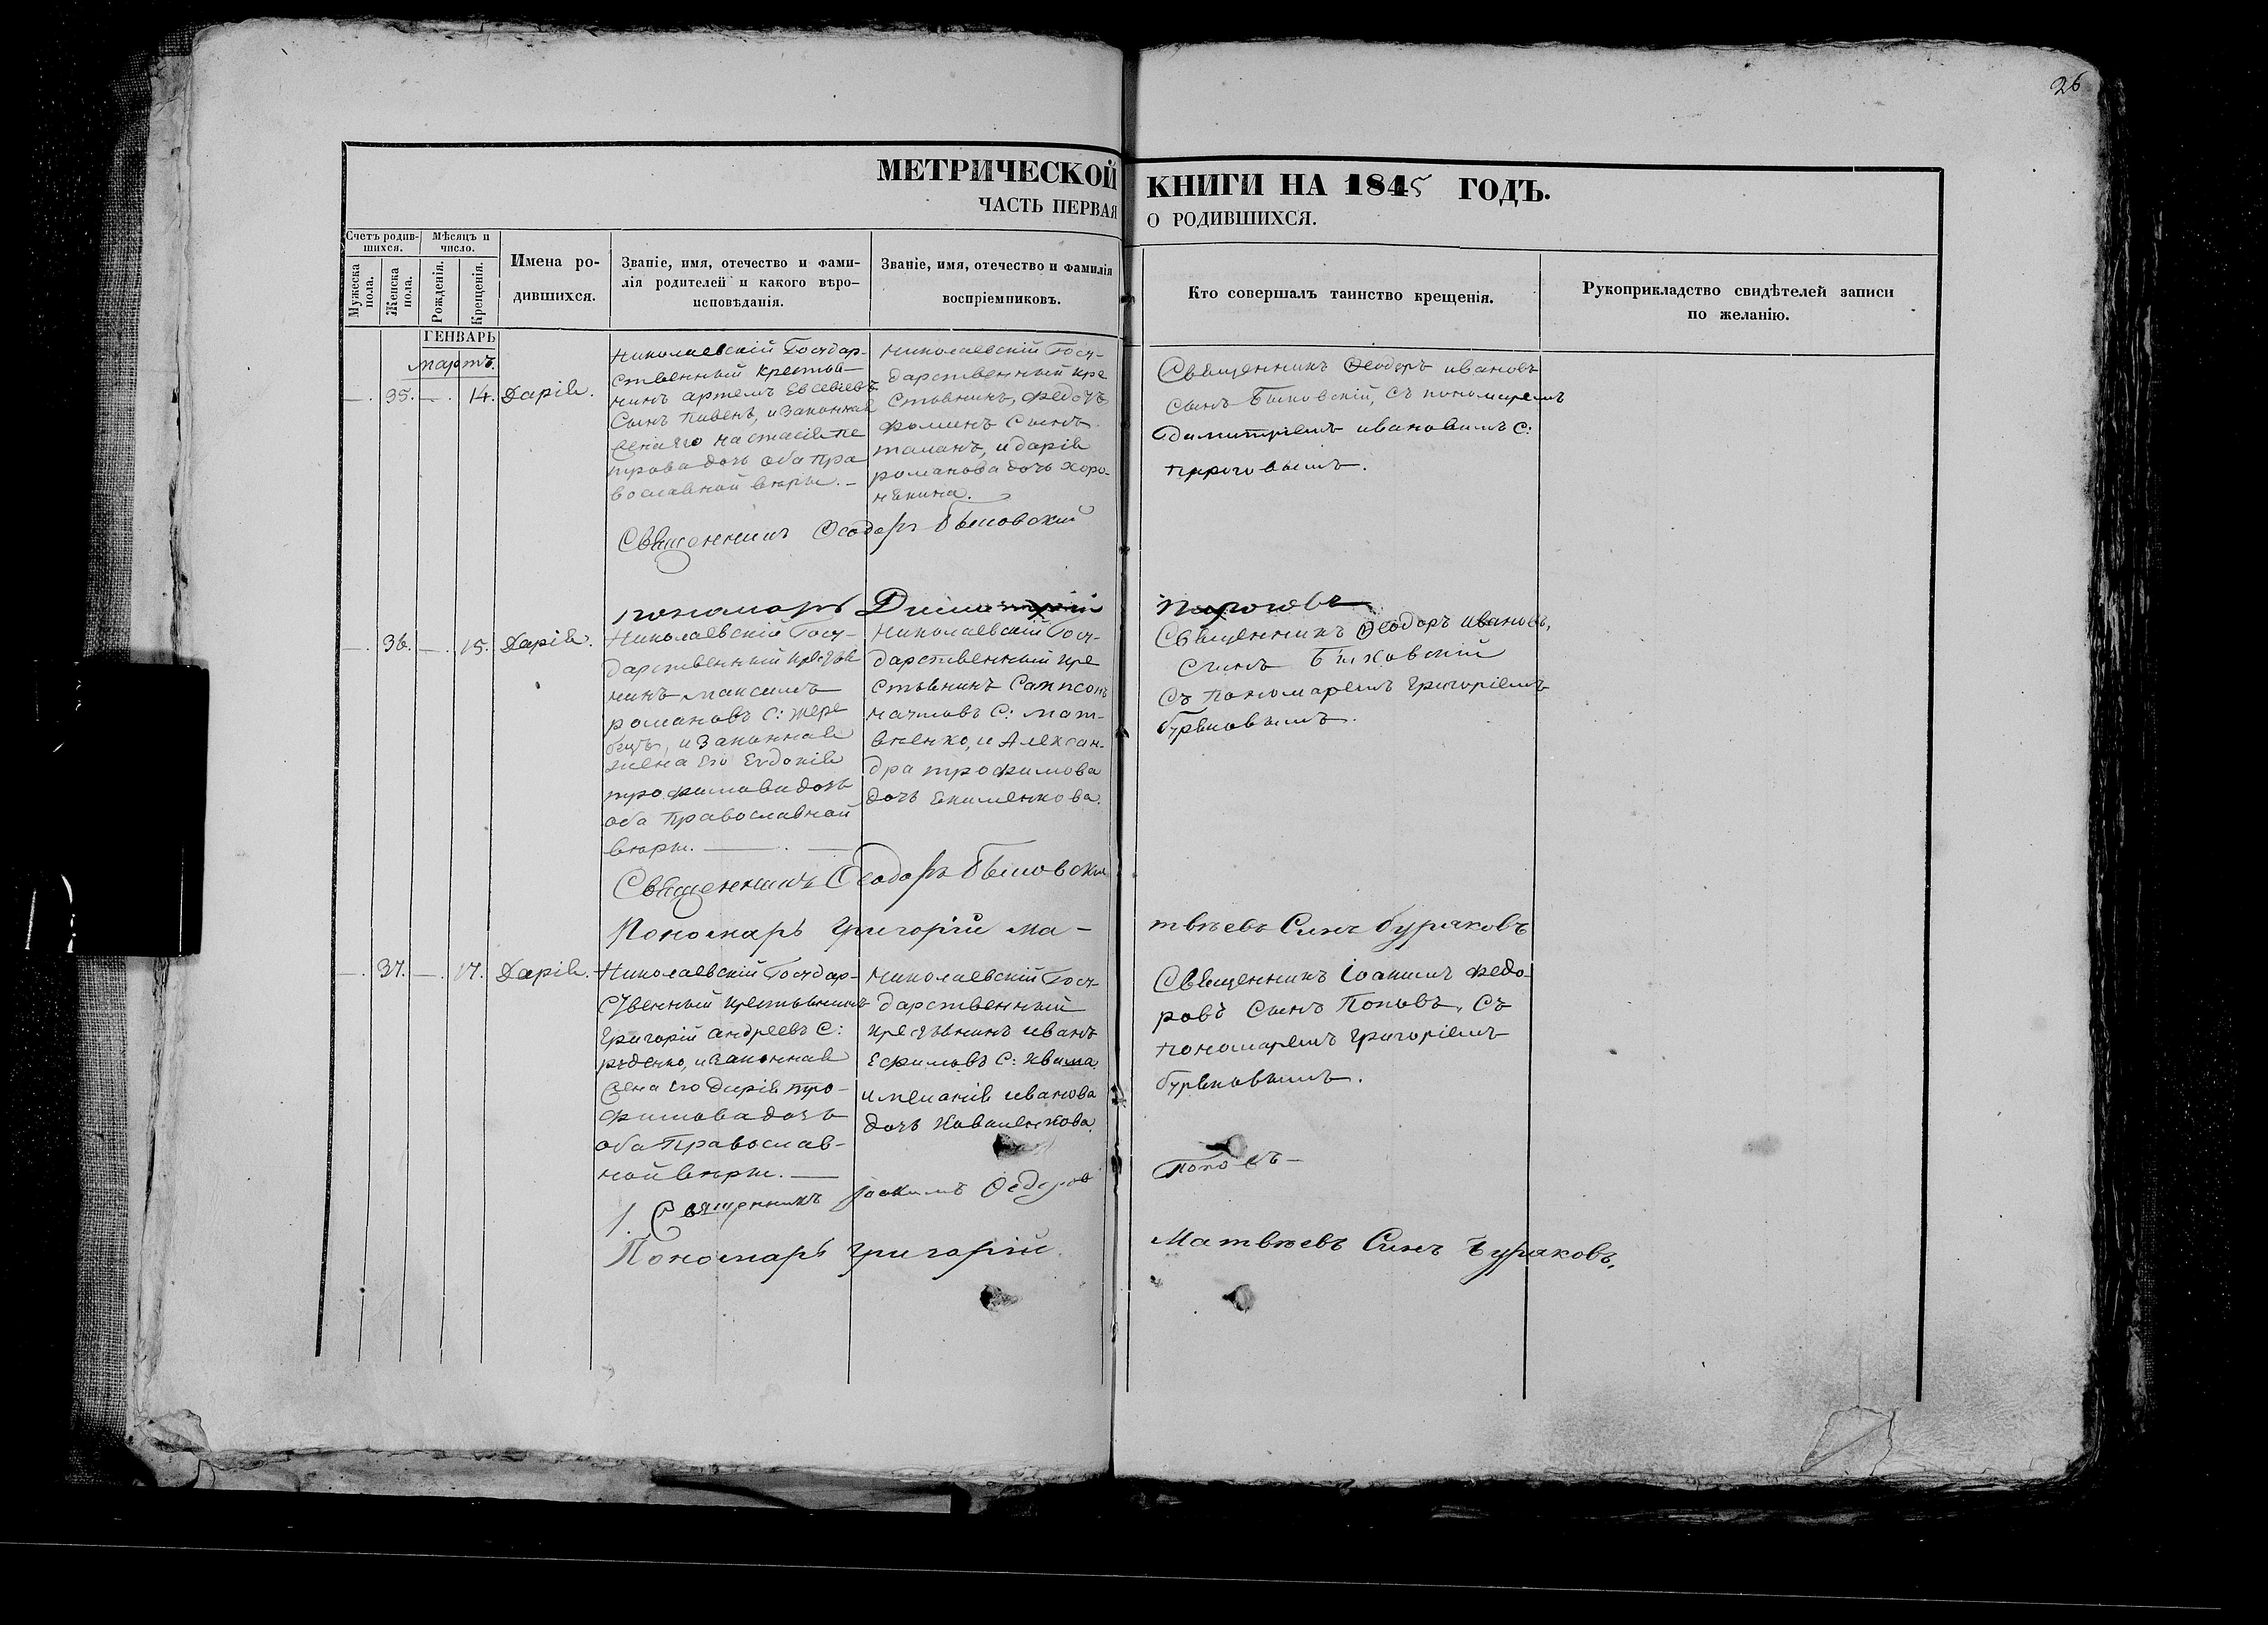 26
МЕТРИЧЕСКОЙ КНИГИ НА 1845 ГОДЪ.
ЧАСТЬ ПЕРВАЯ О РОДИВШИХСЯ.
Счетъ родив-
шихся.
Мужеска пола.
Женска пола.
Мѣсяцъ и
число.
Рожденія.
Крещенія.
Имена ро-
дившихся.
Званіе, имя, отечество и фами-
лія родителей и какого вѣро-
исповѣданія.
Званіе, имя, отечество и фамилія
воспріемниковъ.
Кто совершалъ таинство крещенія.
Рукоприкладство свидѣтелей записи
по желанію.
ГЕНВАРЬ
мартъ.
— . 35. — . 14. Дарія.
Николаевскій Государ-
ственный крестья-
нинъ Артемъ Евсевіевъ
Сынъ Пивень, и Законная
жена его Настасія Пе
трова дочь оба Пра
вославной вѣры. —
Николаевскій Госу-
дарственный кре
стьянинъ, Федотъ
Фоминъ Сынъ
, и Дарія
романова дочь
Священникъ Ѳеодоръ ивановъ
сынъ Быковскій, съ пономаремъ
Димитріемъ ивановымъ С:
Пироговымъ.
Священникъ Ѳеодоръ Быковскій
пономарь Димитрій Пироговъ
— . 36. — . 15. Дарія.
Николаевскій Госу-
дарственный крестья
нинъ Максимъ
романовъ С: жере
бецъ, и Законная
жена Его Евдокія
трофимова дочь
оба Православной
вѣры. —
Николаевскій Госу-
дарственный кре
стьянинъ Сампсонъ
Наумовъ С: Мат-
вѣенко, и Алексан-
дра трофимова
дочь Екименкова.
Священникъ Ѳеодоръ Ивановъ,
сынъ Быковскій
съ пономаремъ Григоріемъ
буряковымъ.
Священникъ Ѳеодоръ Быковскій
Пономарь Григорій Ма-
твѣевъ Сынъ буряковъ
— . 37. — . 17. Дарія.
Николаевскій Государ-
ственный крестьянинъ
Григорій Андреевъ С:
, и Законная
жена его Дарія тро-
фимова дочь
оба Православ-
ной вѣры. —
Николаевскій Госу-
дарственный
крестьянинъ иванъ
Ефимовъ С: Квима
и меланія иванова
дочь Коваленкова.
Священникъ Іоакимъ Федо-
ровъ Сынъ Поповъ, Съ
пономаремъ Григоріемъ
буряковымъ.
Священникъ Іоакимъ Ѳедоровъ
Поповъ —
Пономарь Григорій
Матвѣевъ Сынъ Буряковъ.